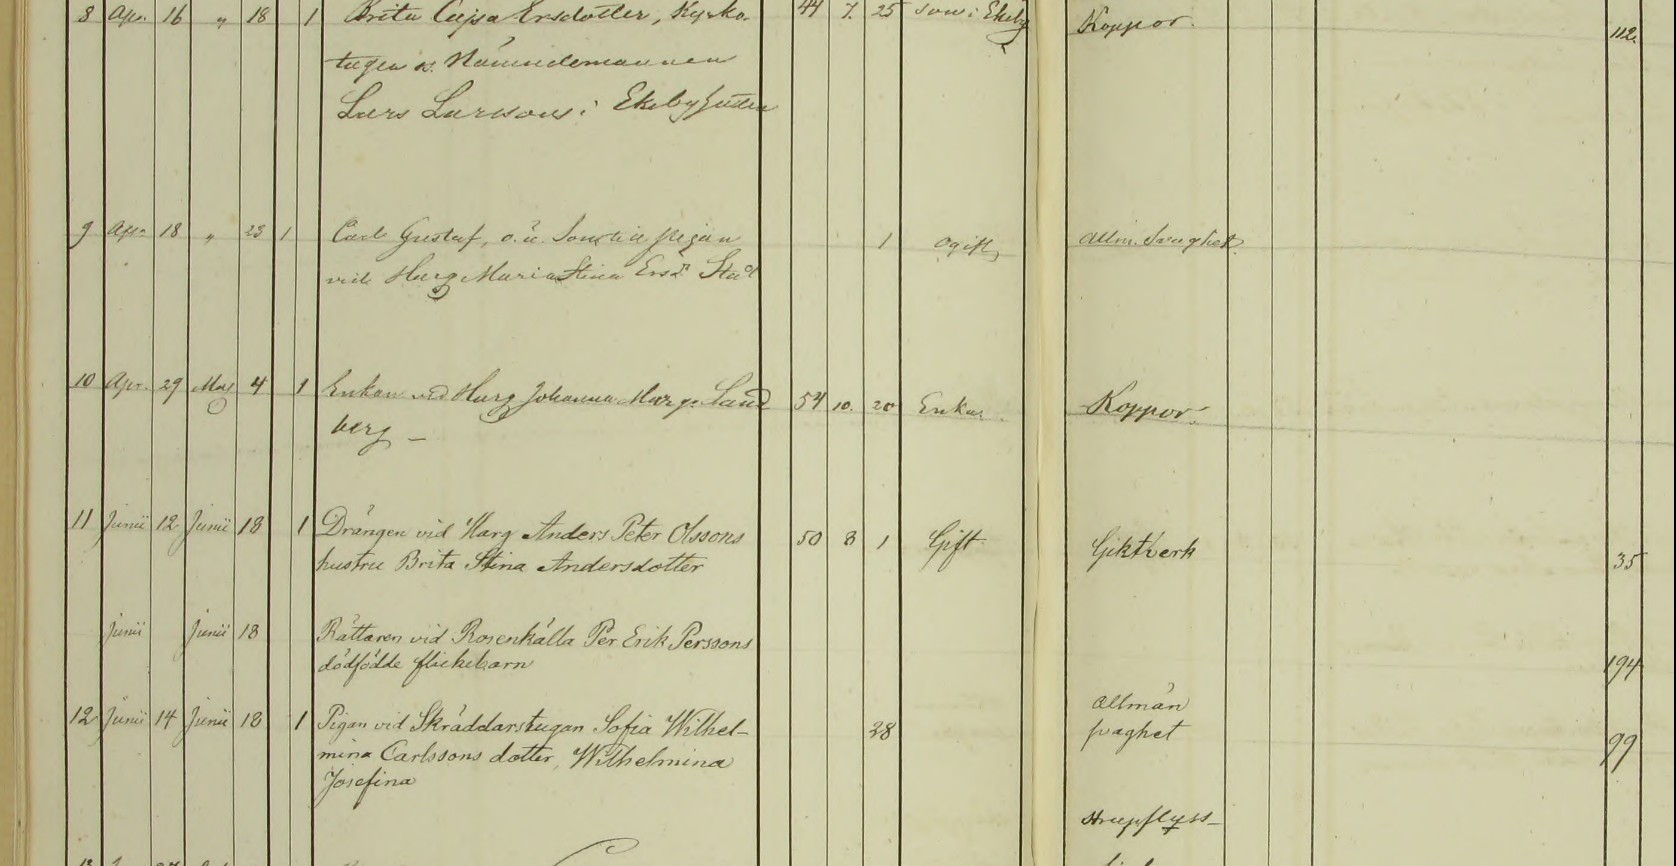 8 Apr. 16 " 18 1 Brita Cajsa Ersdotter, Kyrko- 44 7. 25 Koppor. 112.
Nämndemannen
Lars Larssons i Ekeby
9 Apr. 18 " 23 1 Carl Gustaf, o. ä. Son till pigan 1 ogift Allm. Svaghet.
vid Harg Maria Stina Ersdr
10 Apr. 29 Maj 4 1 Enkan vid Harg Johanna Marg. Sand 54 10. 20 Enka. Koppor.
berg –
11 Junii 12 Junii 18 1 Drängen vid Harg Anders Peter Olssons 50 8 1 Gift Giktverk 35
hustru Brita Stina Andersdotter
Junii Junii 18 Rättaren vid Rosenkälla Per Erik Perssons
dödfödde flickebarn 194
12 Junii 14 Junii 18 1 Pigan vid Skräddarstugan Sofia Wilhel- 28 Allmän
mina Carlssons dotter, Wilhelmina 99
Josefina
13